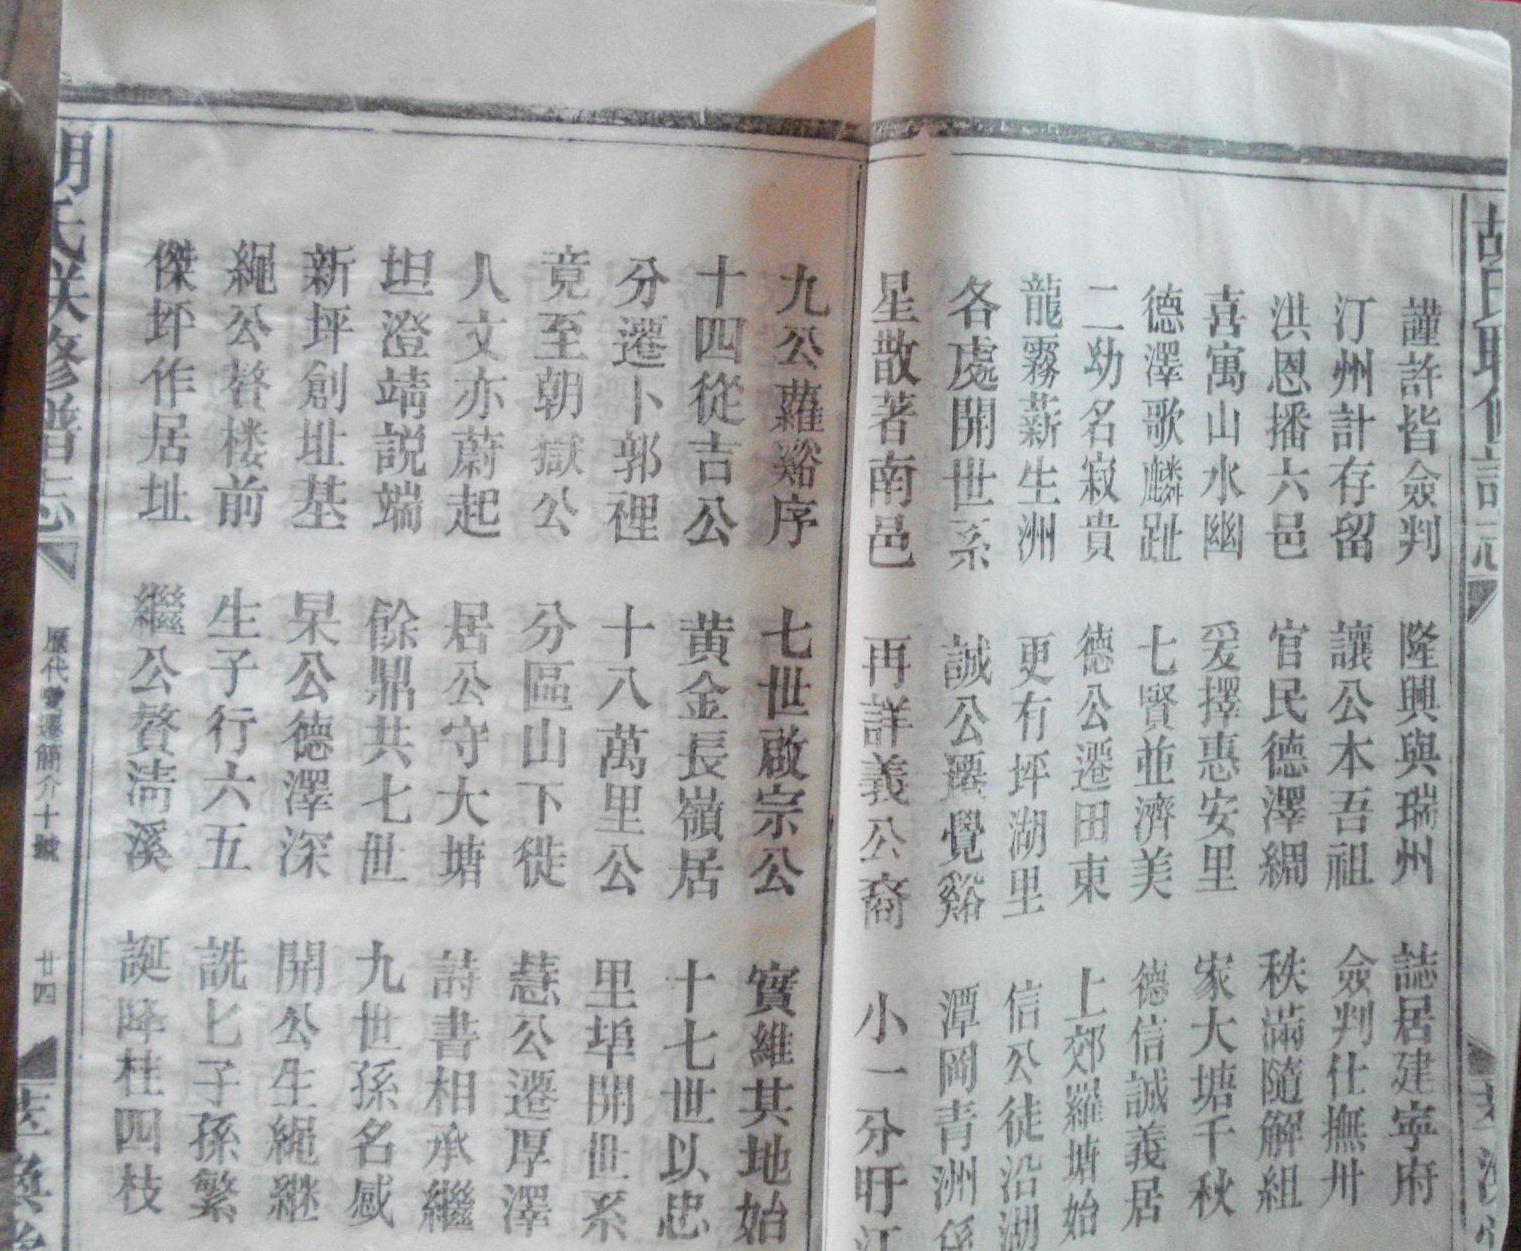 謹許皆僉判 隆興與瑞州 誌居建寧府
汀州計存留 讓公本吾祖 僉判仕撫卅
洪恩播六邑 官民德澤綢 秩滿隨解組
喜寓山水幽 爰擇惠安里 家大塘千秋
德澤歌麟趾 七賢並濟美 德信誠義居
二幼名寂貴 德公遷田東 上郊羅塘始
龍霧薪生洲 更有坪湖里 信公徒沿湖
各處開世系 誠公遷覺谿 潭岡青洲係
星散著南邑 再詳義公裔 小一分盱江
九公蘿谿序 七世啟宗公 實維其地始
十四從吉公 黃金長嶺居 十七世以忠
分遷卜郭裡 十八萬里公 里埠開世系
竟至朝獄公 分區山下徙 慧公遷厚澤
人文亦蔚起 居公守大塘 詩書相承繼
坦澄靖説端 餘鼎共七世 九世孫名感
新坪創址基 杲公德澤深 開公生繩継
繩公嶅楼前 生子行六五 詵匕子孫繁
傑坪作居址 繼公贅清溪 誕降桂四枝
胡氏联修譜志
歷代 遷簡介十號
廿四